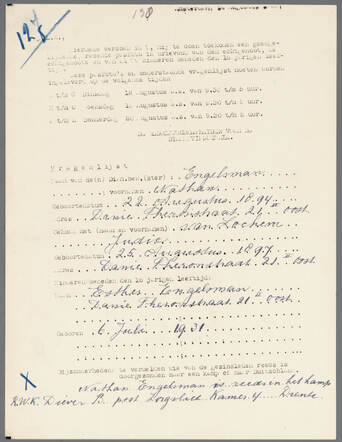 12/5
150
Hiermede verzoek ik U, mij te doen toekomen een goedge-
lijkende, recente pasfoto in drievoud van den echtgenoot, de
echtgenoote en van de kinderen beneden den 16 jarigen leef-
tijd.
Deze pasfoto's en onderstaande vragenlijst moeten worden
ingeleverd op de volgende tijden
A t/m G Dinsdag 18 Augustus a.s. van 9.30 t/m 5 uur.
H t/m O Woensdag 19 Augustus a.s. van 9.30 t/m 5 uur.
P t/m Z Donderdag 20 Augustus a.s. van 9.30 t/m 5 uur.
Vragenlijst
Naam van de(n) Dienbew.(ster) Engelsman
voornamen Nathan
Geboortedatum 22 Augustus 1894
Adres Danie Theronstraat 21 II Oost
Gehuwd met (naam en voornamen) van Lochem
Judic
Geboortedatum 25 Augustus 1897
Adres Danie Theronstraat 21 II Oost
Kinderen beneden den 16 jarigen leeftijd:
Naam Esther Engelsman
Danie Theronstraat 21 II Oost
Geboren 6 Juli 1931
Bijzonderheden: te vermelden wie van de gezinsleden reeds is
doorgezonden naar een kamp of naar Duitschland.
Nathan Engelsman is reeds in het kamp
X
R.W.K. Diever B. post Dwingeloo Kamer 4 Drente